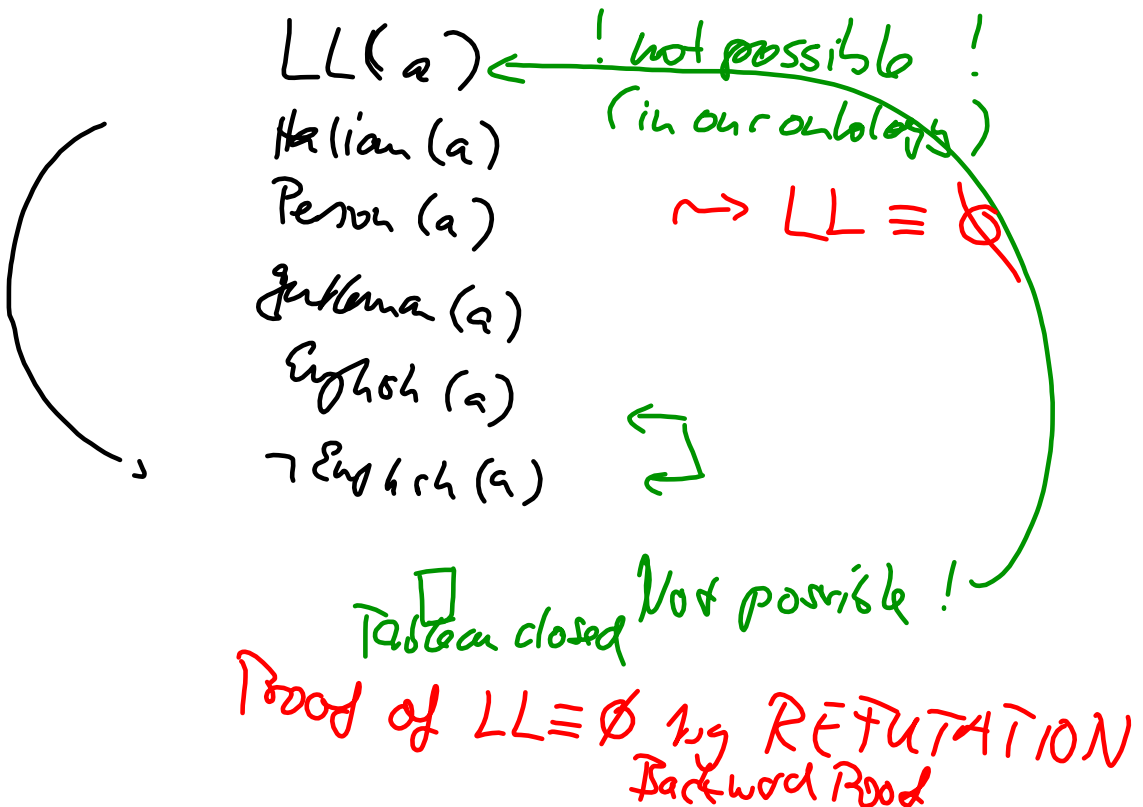 LL(a) ! not possible !
(in our ontology)
Italian (a)
Person (a)
⇝ LL ≡ ∅
gentleman (a)
English (a)
¬ English (a)
Not possible !
□
Tableau closed
Proof of LL ≡ ∅ by REFUTATION
Backward Proof